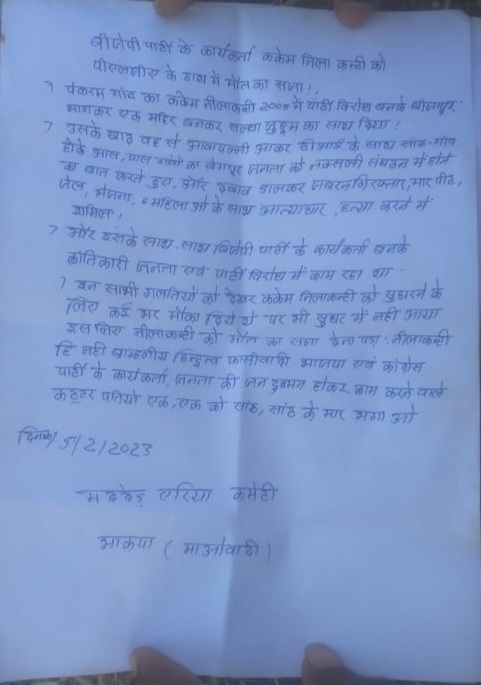 बीजेपी पार्टी के कार्यकर्ता ककेम निला कन्ती को
पीएलजीए के हाथ में मौत का सजा!,
? पेंकरम गांव का ककेम नीलाकन्टी 2005 में पार्टी विरोध बनके बीजापुर
भागकर एक महिर बनकर सल्वा जुडूम का साथ दिया!
? उसके बाद वह से आवापल्ली आकर के साथ सांठ-गांठ
होके आस, पास गांवों का जनता को नक्सली संघठन में होने
का बात करते हुए, और दबाव डालकर जबरन गिरफ्तार, मार पीट,
जेल, भेजना, महिला ओ के साथ आत्याचार, हत्या करने में
शामिल,
? और इसके साथ-साथ बिजेपी पार्टी के कार्यकर्ता बनके
क्रांतिकारी जनता एवं पार्टी विरोध में काम रहा था
? इन साभी गलतियों को देखर ककेम निलाकन्टी को सुधारने के
लिए कई भर मौका दिये थे पर भी सुधर में नहीं आया
इस लिए नीलाकन्टी को मौत का सजा देना पड़ा. नीलाकन्टी
हि नहीं ब्राम्हणीय हिन्दुत्व फासीवादि भाजपा एवं कांग्रेस
पार्टी के कार्यकर्ता, जनता की जन दुश्मन होकर काम करने वाले
कट्टर पतियो एक, एक को सांठ, सांठ के मार भगा ओ
दिनांक 5/2/2023
मद्देड़ एरिया कमेटी
भाकपा (माओवादी)